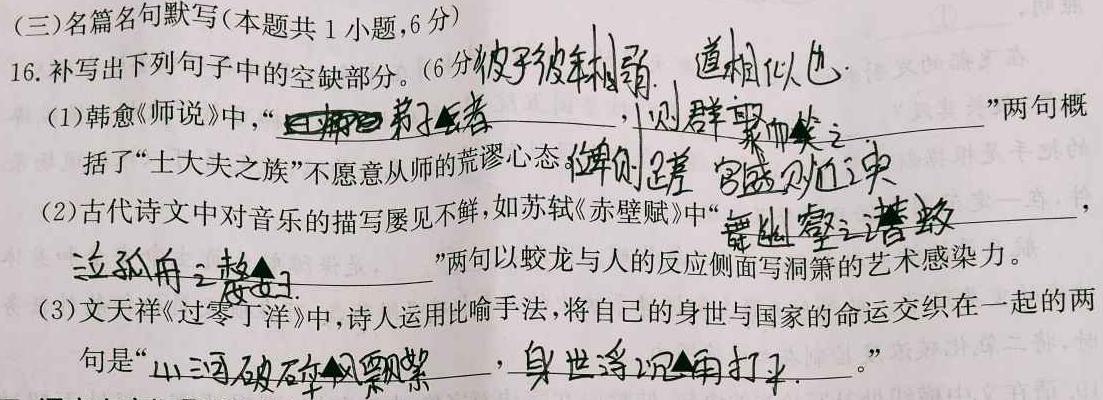 (三)名篇名句默写(本题共1小题,6分)
16.补写出下列句子中的空缺部分。(6分)彼与彼年相若,道相似也.
(1)韩愈《师说》中,“弟子云者,则群聚而笑之”两句概
括了“士大夫之族”不愿意从师的荒谬心态。位卑则足羞 官盛则近谀
(2)古代诗文中对音乐的描写屡见不鲜,如苏轼《赤壁赋》中“舞幽壑之潜蛟,
泣孤舟之嫠妇.”两句以蛟龙与人的反应侧面写洞箫的艺术感染力。
(3)文天祥《过零丁洋》中,诗人运用比喻手法,将自己的身世与国家的命运交织在一起的两
句是“山河破碎风飘絮,身世浮沉雨打平.。”